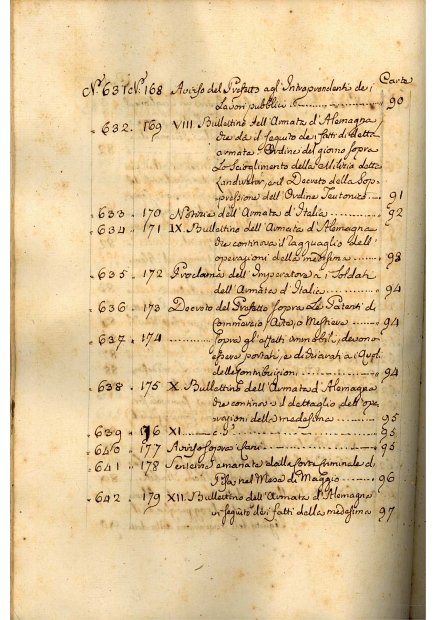 Carte
N.° 631 N.° 168 Avviso del Prefetto agl' Intraprendenti dei
Lavori pubblici 90
632. 169 VIII. Bullettino dell' Armata d'Alemagna,
che dà il seguito dei fatti di detta
armata. Ordine del giorno sopra
Lo Scioglimento della Milizia detta
Landwehr, e il Decreto della Sop-
pressione dell' Ordine Teutonico 91
633 170 Notizie dell' Armata d'Italia 92
634 171 IX. Bullettino dell' Armata d'Alemagna
che continova il ragguaglio dell'
operazioni della medesima 93
635 172 Proclama dell' Imperatore a i Soldati
dell' Armata d'Italia 94
636 173 Decreto del Prefetto sopra Le Patenti di
Commercio, Arte, o Mestiere 94
637 174 sopra gl' affitti immobili, devono
essere portati, e dichiarati a i Ruoli
delle Contribuzioni 94
638 175 X. Bullettino dell' Armata d'Alemagna
che continova il dettaglio dell' ope
razioni della medesima 95
639 176 XI. 95
640 177 Avviso sopra 95
641 178 Sentenze emanate dalla Corte Criminale di
Pisa nel Mese di Maggio 96
642 179 XII. Bullettino dell' Armata d'Alemagna
in seguito dei fatti della medesima 97